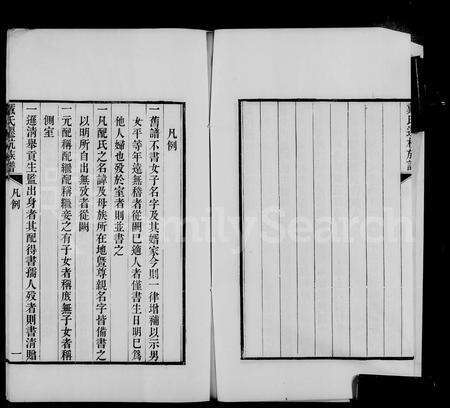 凡例
一舊譜不書女子名字及其婚家今則一律增補以示男
女平等年遠無稽者從闕已適人者僅書生日明已為
他人婦也歿於室者則並書之
一凡配氏之名諱及母族所在地暨尊親名字皆備書之
以明所自出無攷者從闕
一元配稱配繼配稱繼妾之有子女者稱底無子女者稱
側室
一遜清舉貢生監出身者其配得書孺人歿者則書清贈
氏遷杭族譜
凡例
一
FamilySearch